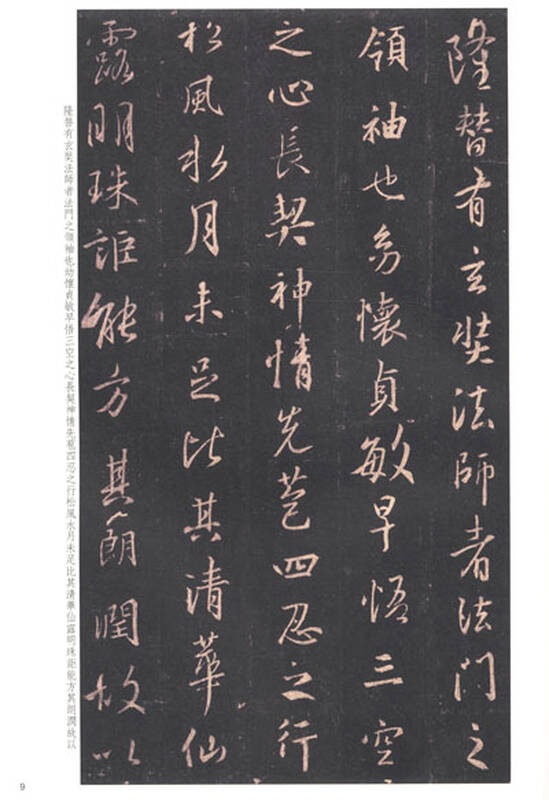 隆替有玄奘法師者法門之
領袖也幼懷貞敏早悟三空
之心長契神情先苞四忍之行
松風水月未足比其清華仙
露明珠詎能方其朗潤故以
隆替有玄奘法師者法門之領袖也幼懷貞敏早悟三空之心長契神情先苞四忍之行松風水月未足比其清華仙露明珠詎能方其朗潤故以
9